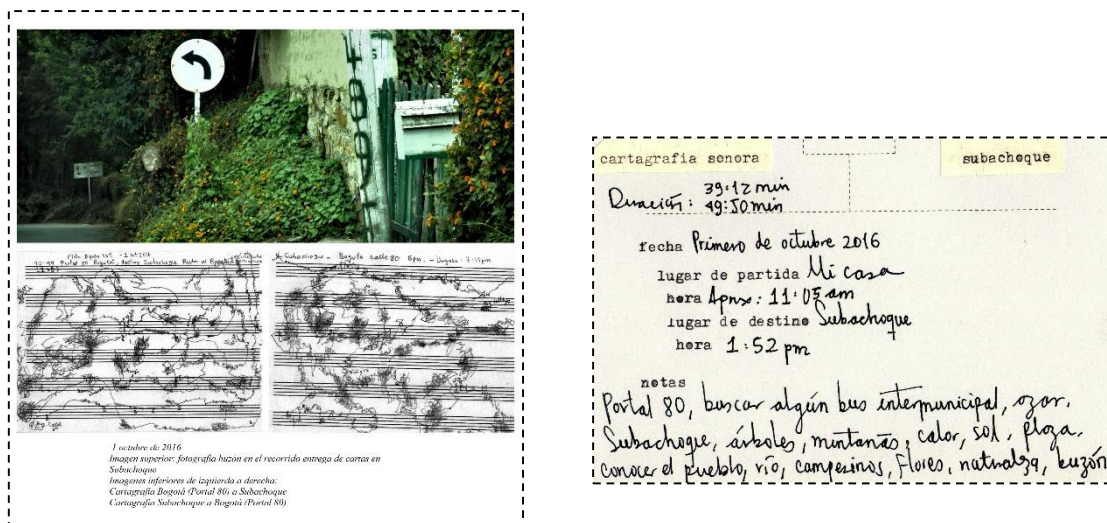 Subachoque - Bogotá calle 80 6pm.
1 octubre de 2016
Imagen superior: fotografía buzón en el recorrido entrega de cartas en
Subachoque
Imagenes inferiores de izquierda a derecha:
Cartografía Bogotá (Portal 80) a Subachoque
Cartografía Subachoque a Bogotá (Portal 80)
cartagrafia sonora
subachoque
39:12 min
Duración: 49:50 min
fecha Primero de octubre 2016
lugar de partida Mi casa
hora Aprox: 11:05 am
lugar de destino Subachoque
hora 1:52 pm
notas
Portal 80, buscar algún bus intermunicipal, azar,
Subachoque, árboles, montañas, calor, sol, plaza,
conocer el pueblo, río, campesinos, flores, naturaleza, buzón